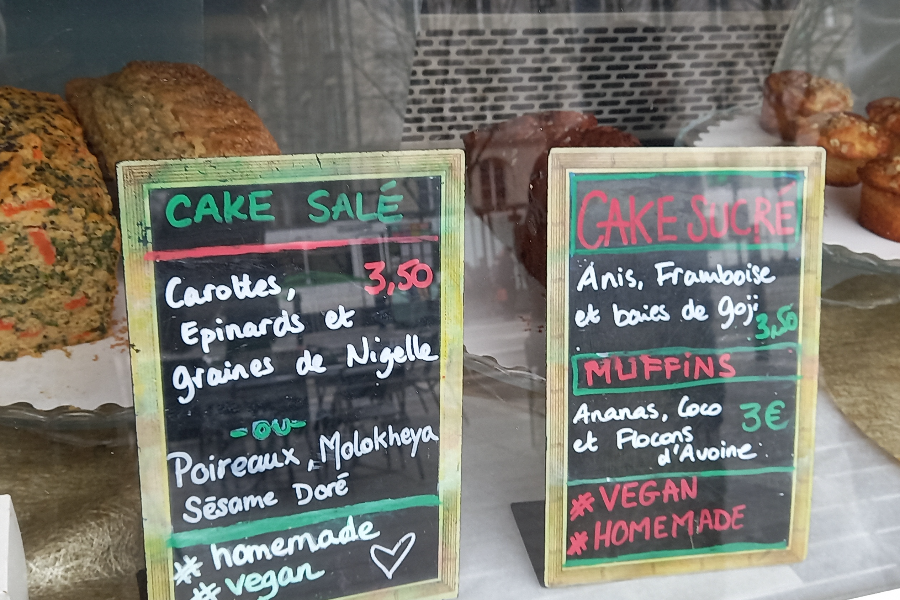 CAKE SALÉ
Carottes, 3,50
Epinards et
graines de Nigelle
-OU-
Poireaux, Molokheya
Sésame Doré
# homemade
# vegan
CAKE SUCRÉ
Anis, Framboise
et baies de goji
3,50
MUFFiNS
Ananas, Coco 3€
et Flocons
d'Avoine
# VEGAN
# HOMEMADE